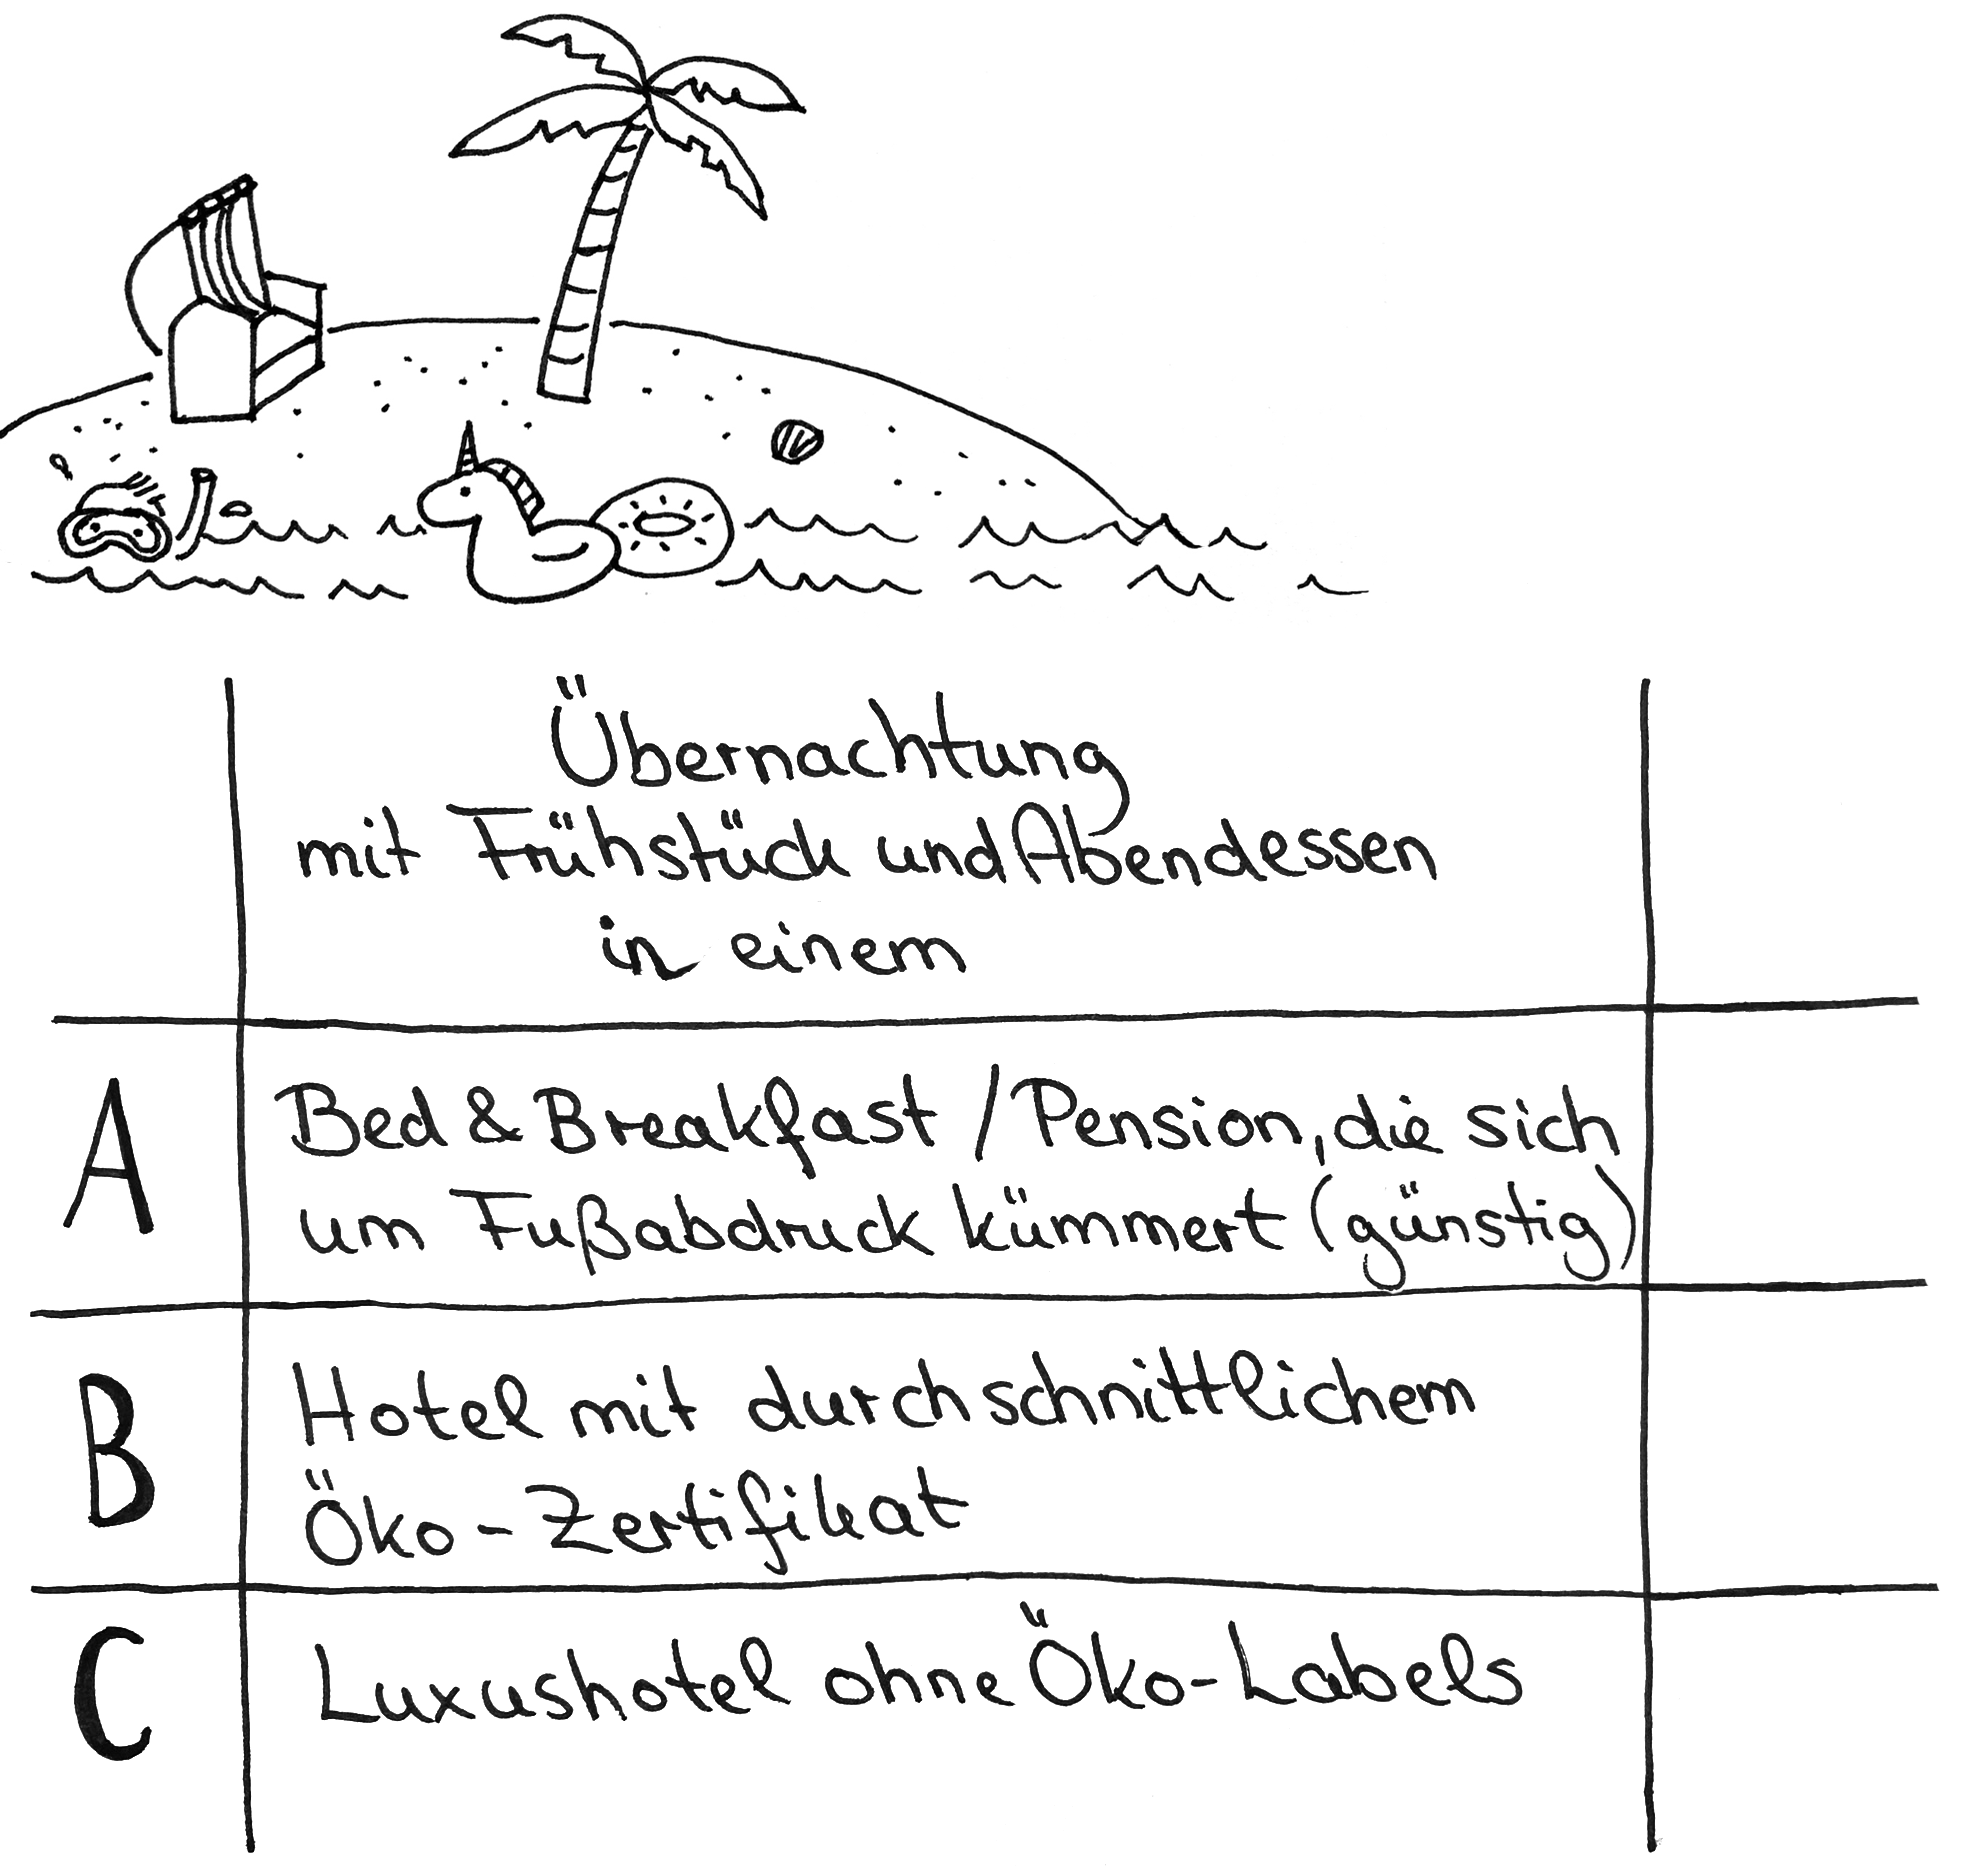 Übernachtung
mit Frühstück und Abendessen
in einem
A
Bed & Breakfast / Pension, die sich
um Fußabdruck kümmert (günstig)
B
Hotel mit durchschnittlichem
Öko-Zertifikat
C
Luxushotel ohne Öko-Labels